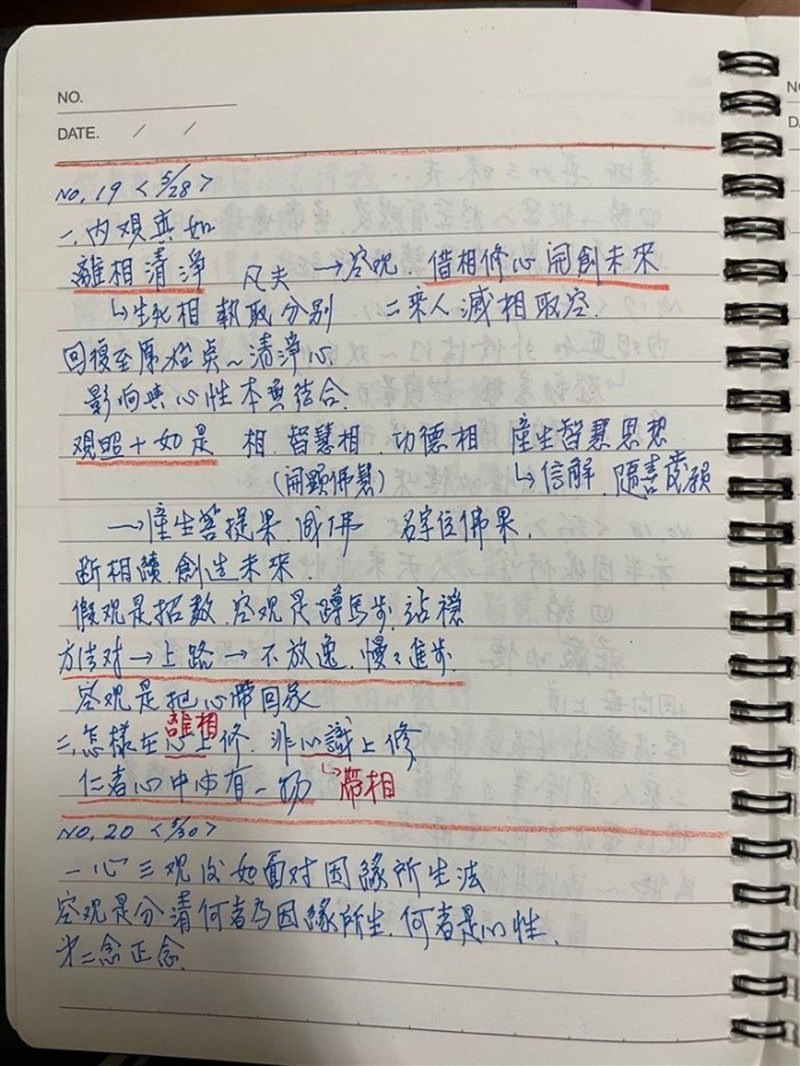 NO.
DATE. / /
No. 19 <5/28>
一、内观真如
離相清淨 凡夫 →空观 借相修心開創未來
↳生死相 執取分別 二乘人滅相取空.
回復至原始点~清淨心.
影响與心性本質結合.
观照+如是 相.智慧相.功德相 產生智慧思想
(開顯佛慧) ↳信解.隨喜發願
→產生菩提果.成佛 名字位佛果.
断相續.創造未來.
假观是招数.空观是蹲馬步.站穩
方法对→上路→不放逸.慢々進步.
空观是把心帶回家
離相
二.怎樣在心上修.非心識上修
仁者心中必有一物 ↳帶相
No. 20 <5/30>
一心三观 如面对因緣所生法
空观是分清何者为因緣所生.何者是心性.
才二念正念.